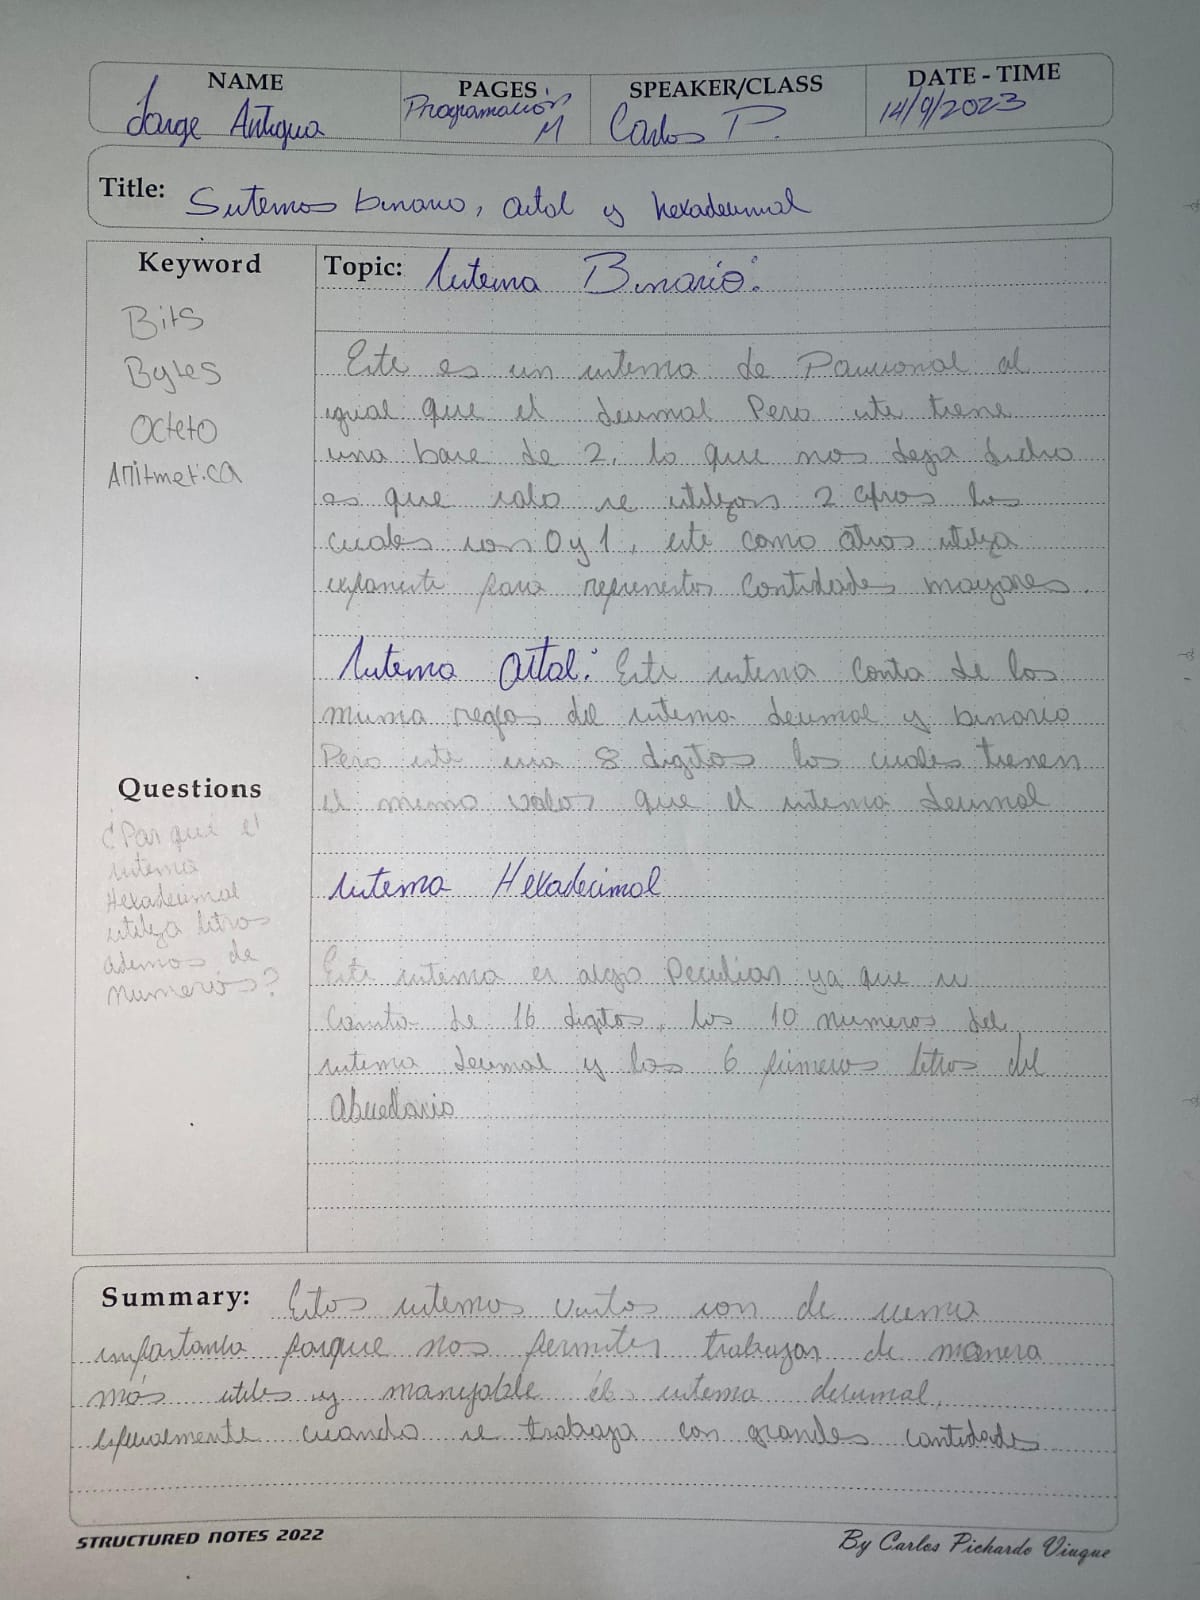 NAME
Jorge Antigua
PAGES
Programación
M
SPEAKER/CLASS
Carlos P.
DATE - TIME
14/9/2023
Title: Sistemas binario, octal y hexadecimal
Keyword
Bits
Bytes
Octeto
Aritmetica
Questions
¿Por qué el
sistema
Hexadecimal
utiliza letras
ademas de
numeros?
Topic: Sistema Binario:
Este es un sistema de Posicional al
igual que el decimal Pero este tiene
una base de 2, lo que nos deja dicho
es que solo se utilizan 2 cifras las
cuales son 0 y 1, este como otros utiliza
exponente para representar cantidades mayores.
Sistema Octal: Este sistema conta de las
misma reglas del sistema decimal y binario
Pero este usa 8 digitos los cuales tienen
el mismo valor que el sistema decimal
Sistema Hexadecimal
Este sistema es algo Peculiar ya que se
consta de 16 digitos, los 10 numeros del
sistema decimal y las 6 primeras letras del
abecedario
Summary: Estos sistemas vistos son de suma
importancia porque nos permiten trabajar de manera
más utiles y manejable el sistema decimal,
especialmente cuando se trabaja con grandes cantidades
STRUCTURED NOTES 2022
By Carlos Pichardo Viuque